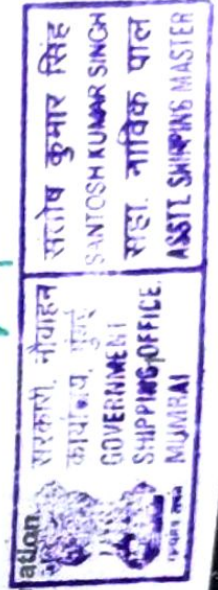 ation
सरकारी नौवाहन
कार्यालय, मुंबई
GOVERNMENT
SHIPPING OFFICE,
MUMBAI
संतोष कुमार सिंह
SANTOSH KUMAR SINGH
सहा. नाविक पाल
ASSTT. SHIPPING MASTER